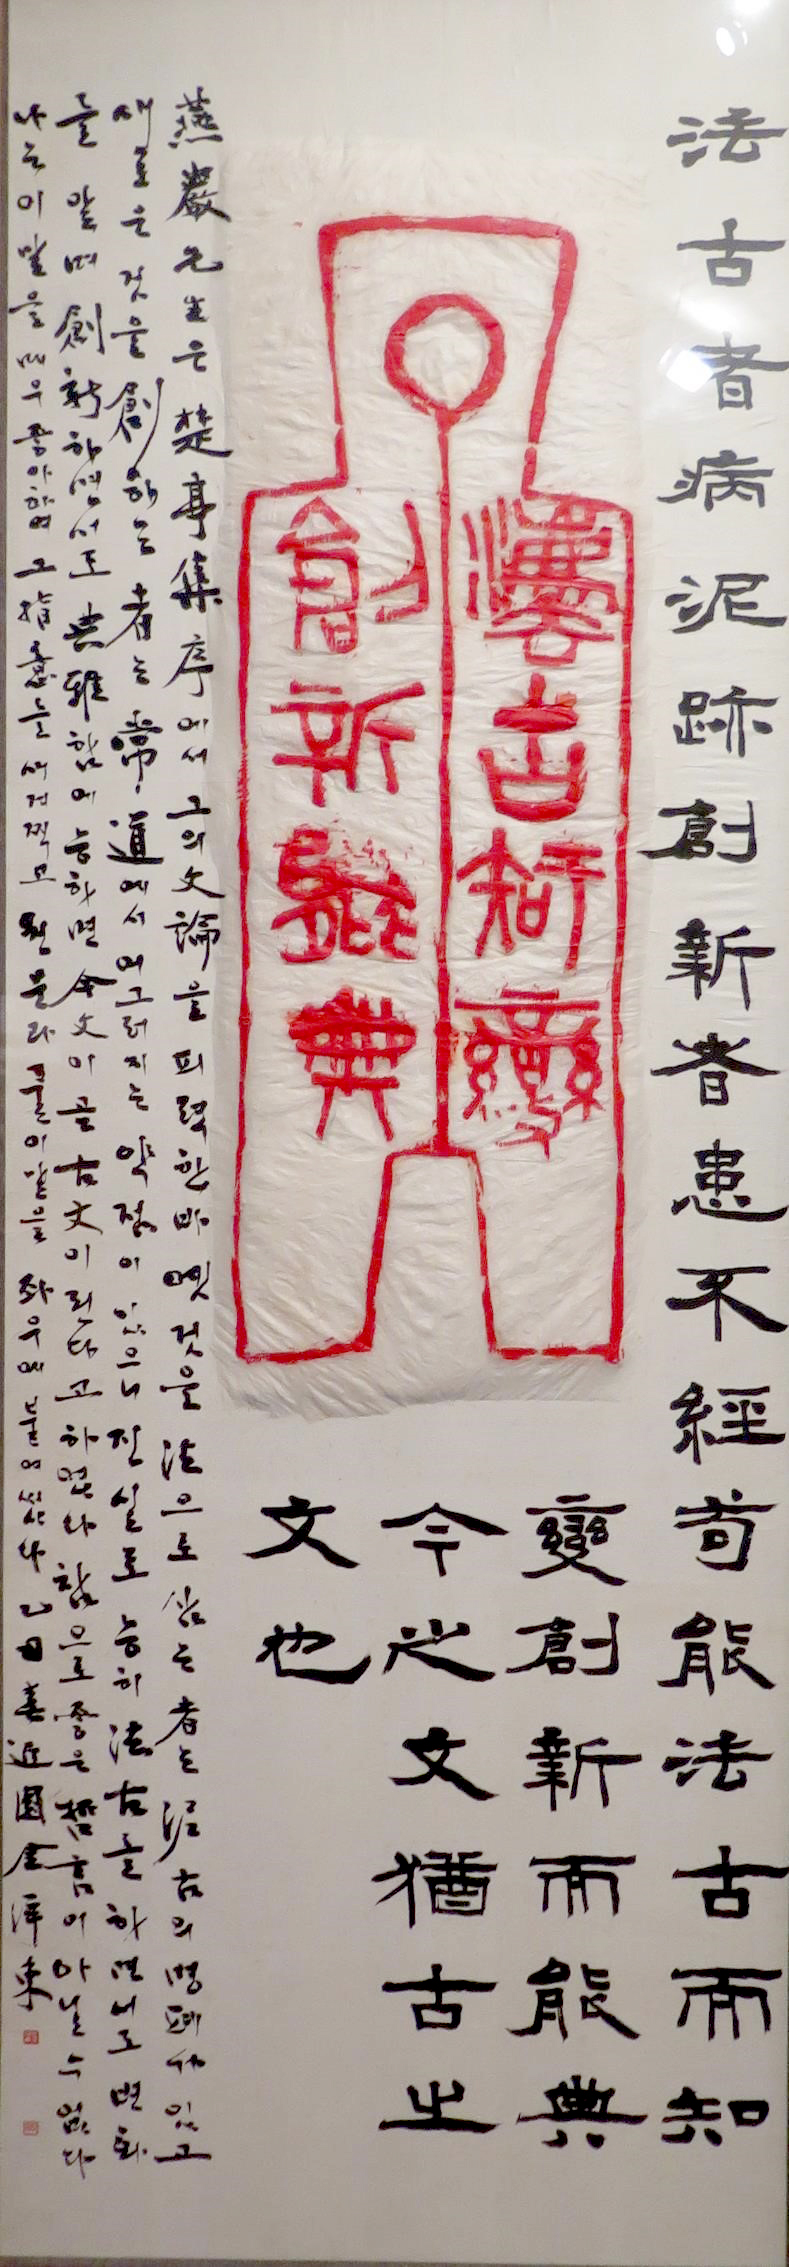 法古者病泥跡創新者患不經苟能法古而知
變創新而能典
今之文猶古之
文也
灋古知變
創新能典
燕巖先生은 楚亭集序에서 그의 文論을 피력한 바 옛것을 法으로 삼는 者는 泥古의 병폐가 있고
새로운 것을 創하는 者는 常道에서 어그러지는 약점이 있으니 진실로 능히 法古를 하면서도 변화
를 알며 創新하면서도 典雅함에 능하면 今文이 곧 古文이 된다고 하였다 참으로 좋은 哲言이 아닐 수 없다
나는 이 말을 매우 좋아하여 그 指意를 새겨 찍고 원문과 풀이말을 좌우에 붙여 썼다 乙丑春 近園 金洋東